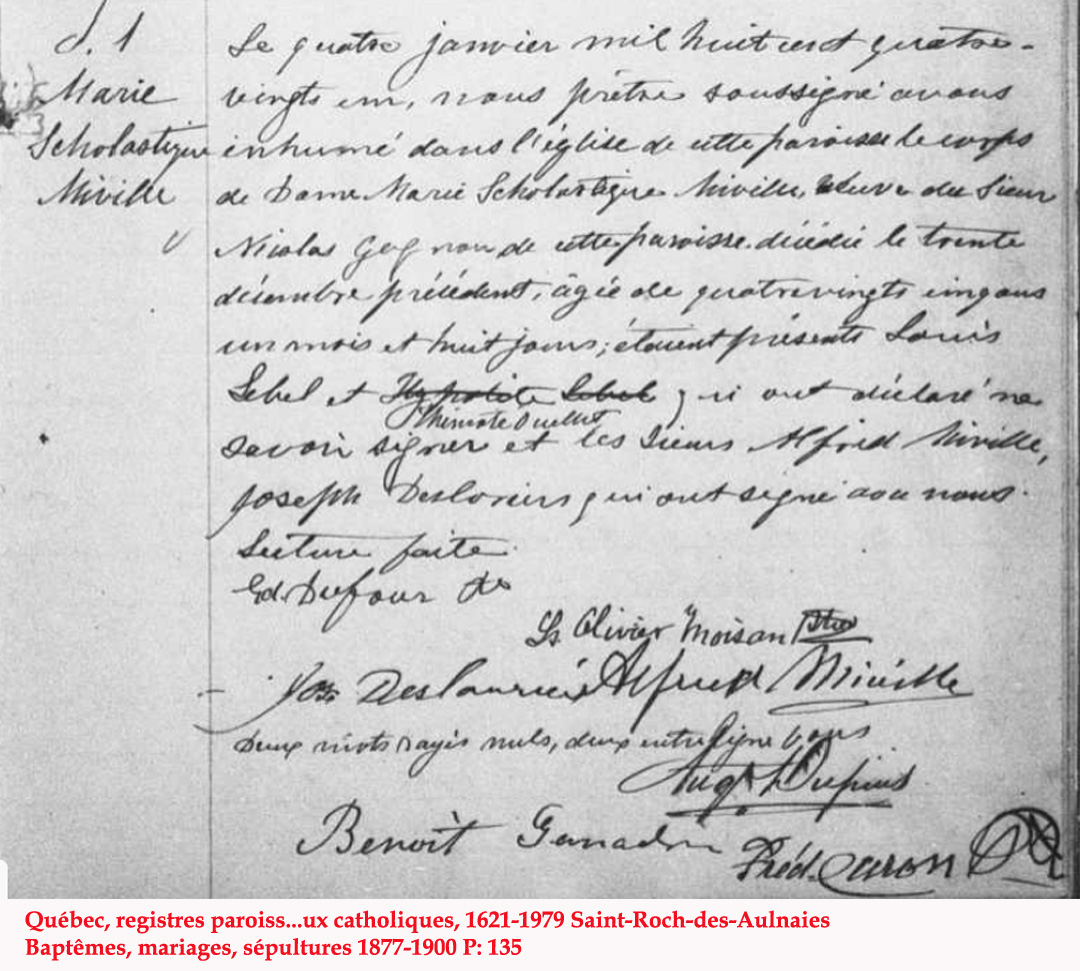 S. 1
Marie
Scholastique
Miville
Le quatre janvier mil huit cent quatre-
vingts un, nous prêtre soussigné avons
inhumé dans l'église de cette paroisse le corps
de Dame Marie Scholastique Miville, veuve du Sieur
Nicolas Gagnon de cette paroisse. décédée le trente
décembre précédent, âgée de quatrevingts cinq ans
un mois et huit jours; étaient présents Louis
Lebel et Hypolite Lebel qui ont déclaré ne
Thimoté Ouellet
savoir signer et les Sieurs Alfred Miville,
Joseph Desloriers qui ont signé avec nous.
Lecture faite.
Ed. Dufour
Ls Olivier Moisan Ptre
Jos Deslauriers Alfred Miville
Deux mots rayés nuls, deux entre ligne bons
Aug. Dupuis
Benoît
Fréd. Caron
Québec, registres paroiss...ux catholiques, 1621-1979 Saint-Roch-des-Aulnaies
Baptêmes, mariages, sépultures 1877-1900 P: 135